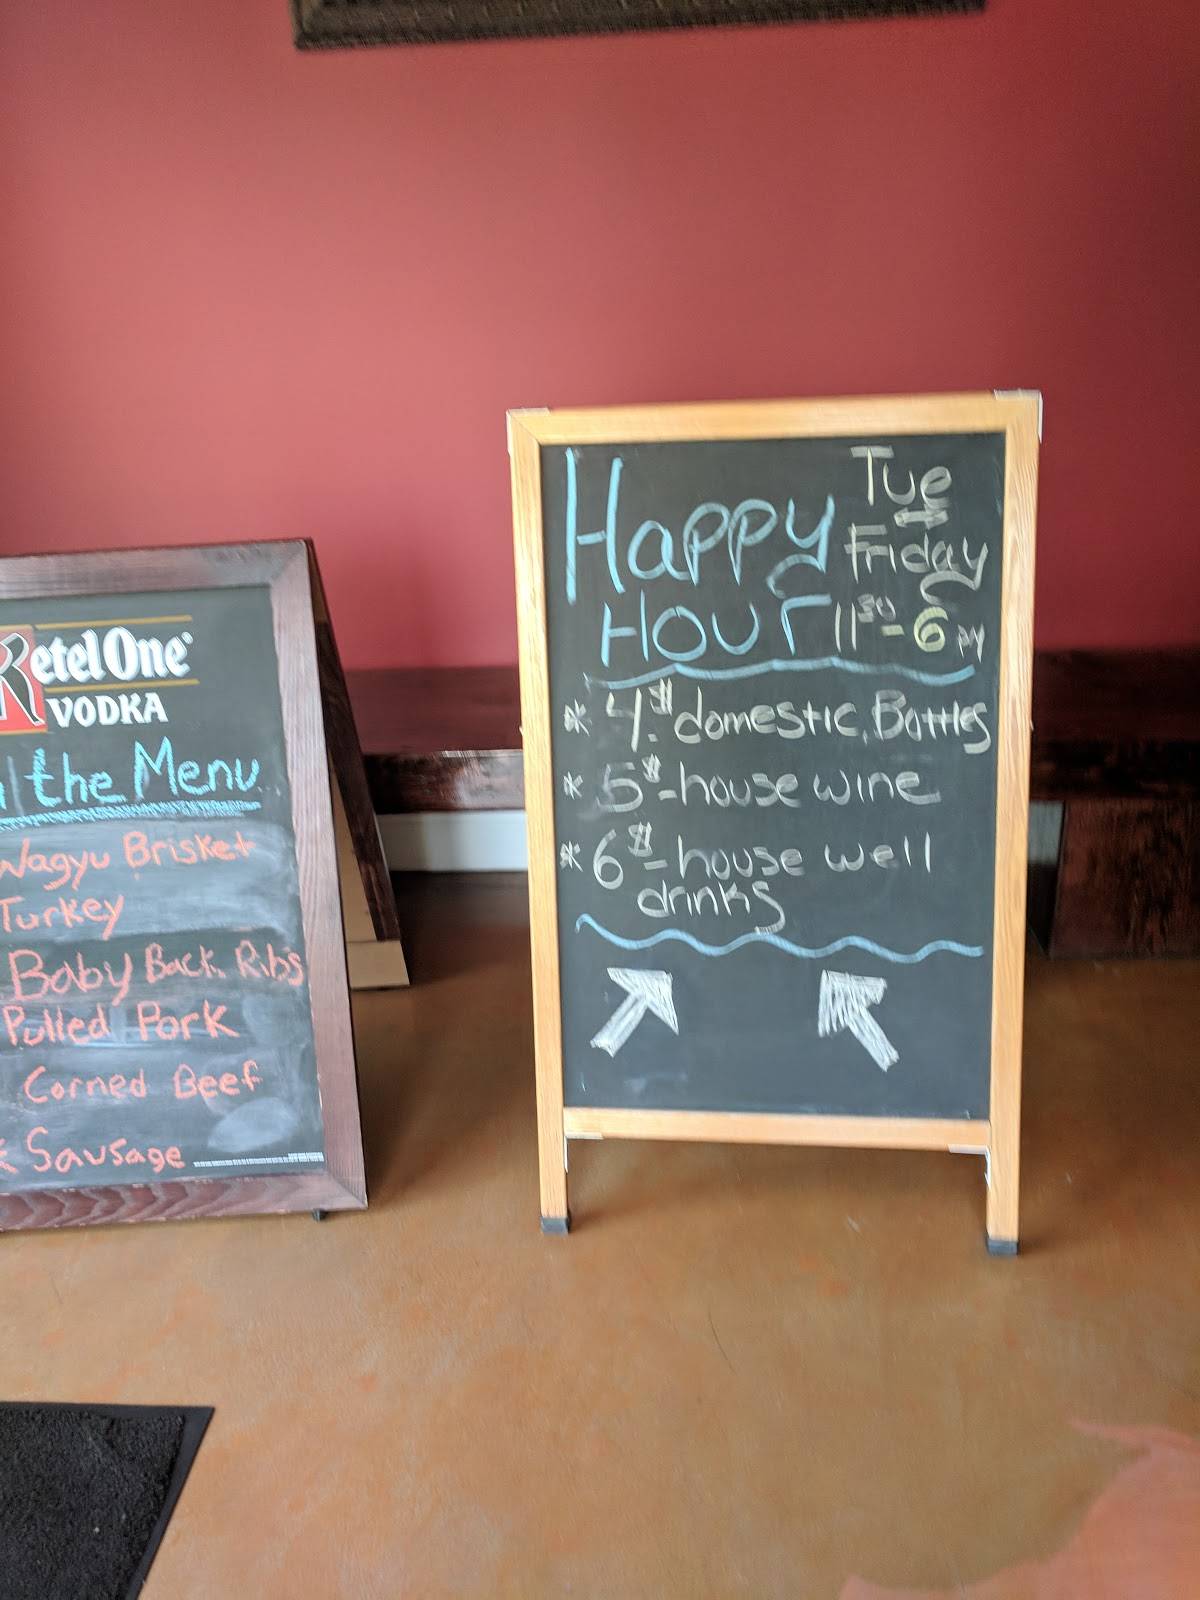 Ketel One
VODKA
the Menu
Wagyu Brisket
Turkey
Baby Back Ribs
Pulled Pork
Corned Beef
Sausage
Happy
Hour
Tue
Friday
11³⁰-6 PM
* 4.$ domestic Bottles
* 5$-house wine
* 6$-house well
drinks